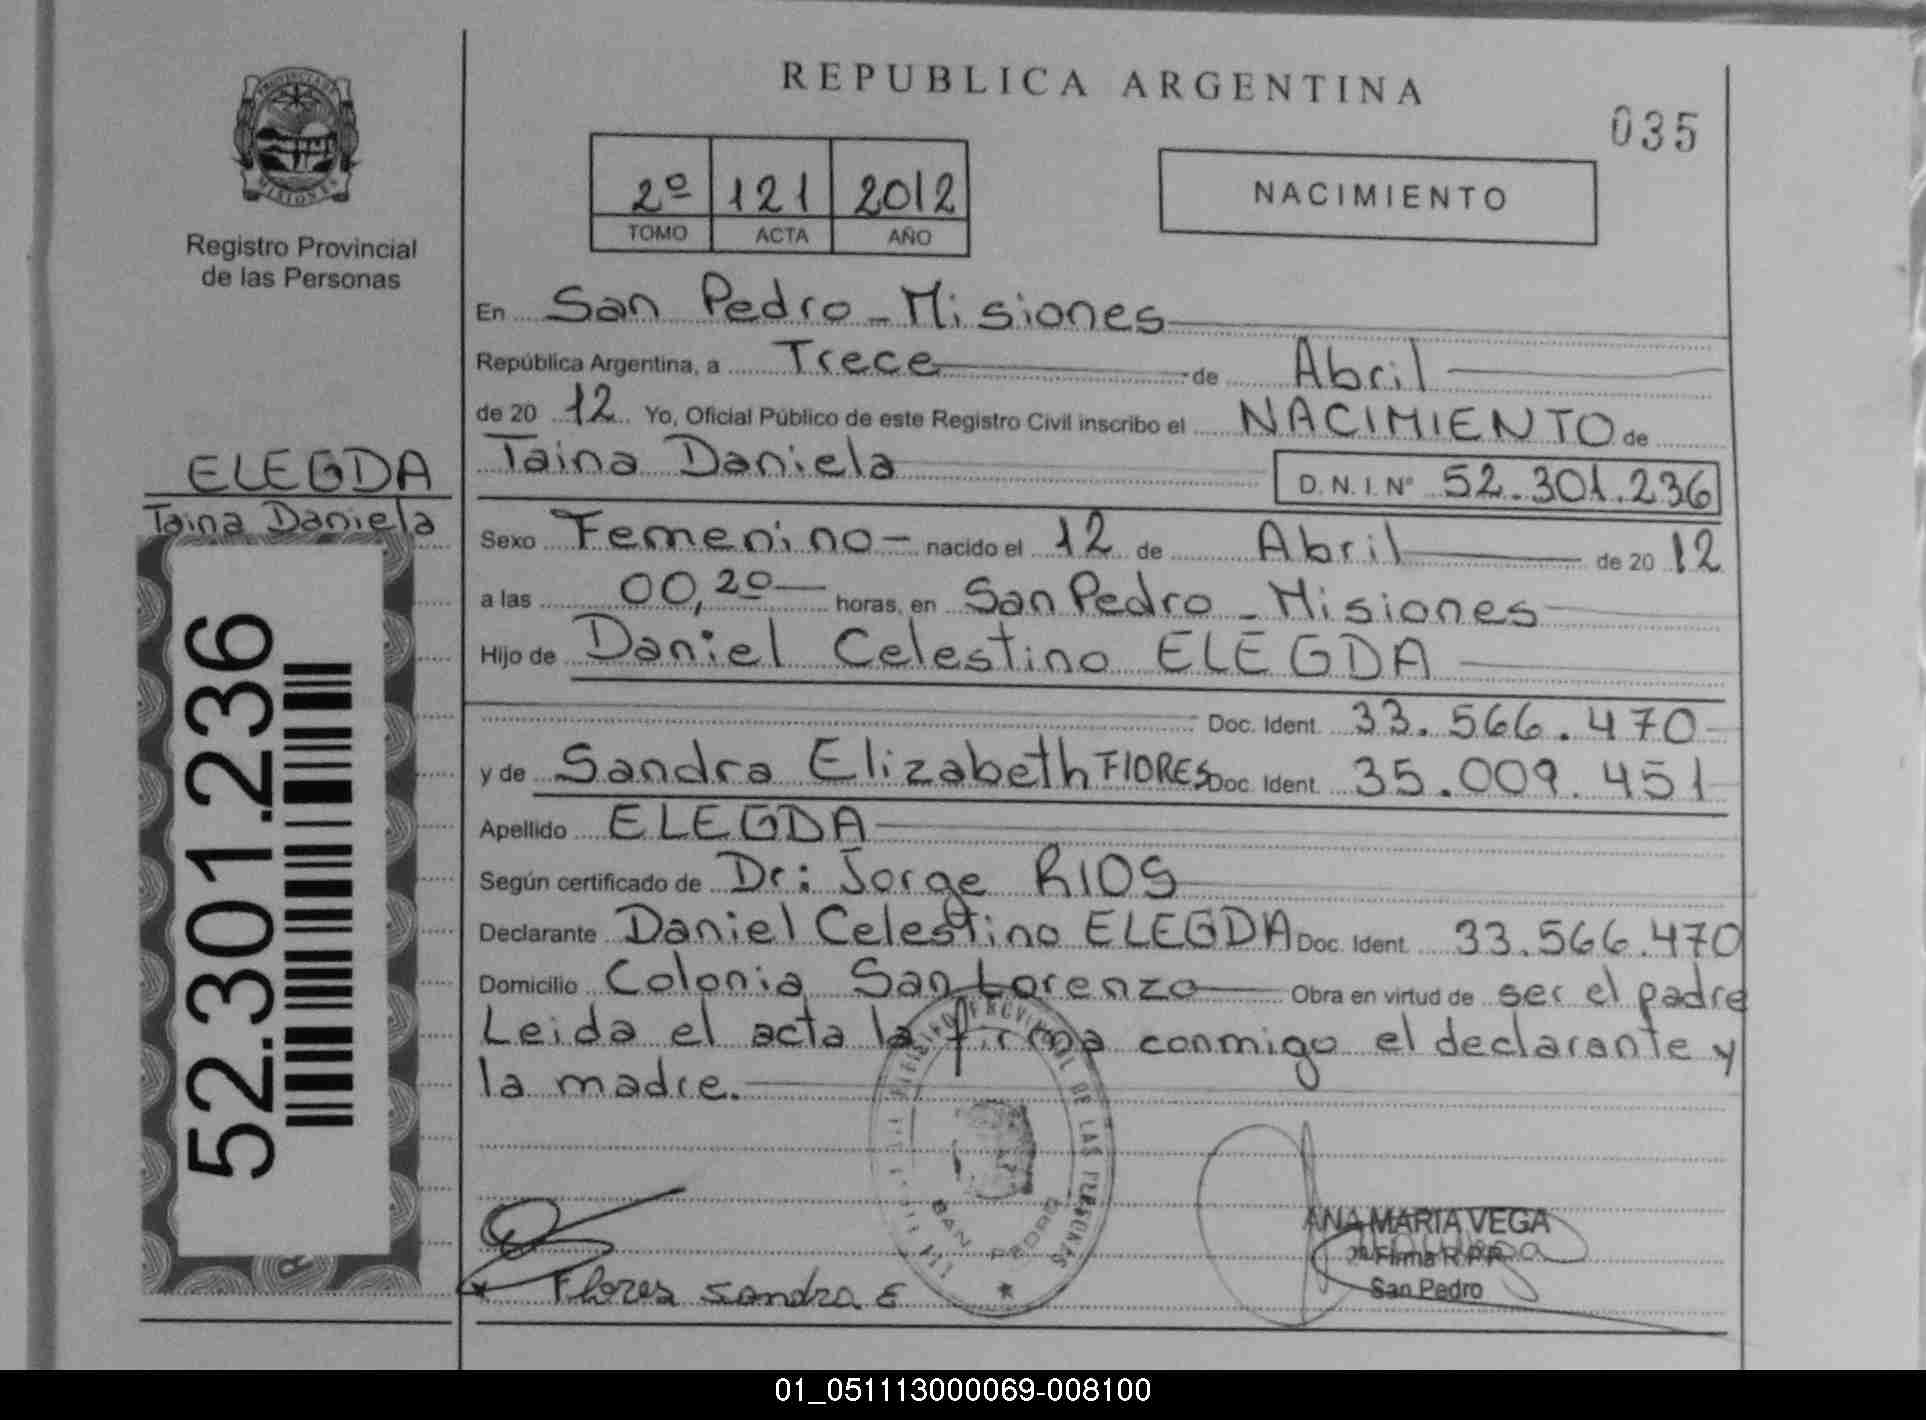 REPUBLICA ARGENTINA
035
PROVINCIA DE
MISIONES
Registro Provincial
de las Personas
2º 121 2012
TOMO ACTA AÑO
NACIMIENTO
En San Pedro - Misiones
República Argentina, a Trece de Abril
de 20 12 Yo, Oficial Público de este Registro Civil inscribo el NACIMIENTO de
Taina Daniela
D.N.I. Nº 52.301.236
ELEGDA
Taina Daniela
52.301.236
Sexo Femenino - nacido el 12 de Abril de 20 12
a las 00,20 horas, en San Pedro - Misiones
Hijo de Daniel Celestino ELEGDA
Doc. Ident. 33.566.470
y de Sandra Elizabeth FlORES Doc. Ident. 35.009.451
Apellido ELEGDA
Según certificado de Dr: Jorge RIOS
Declarante Daniel Celestino ELEGDA Doc. Ident. 33.566.470
Domicilio Colonia San Lorenzo Obra en virtud de ser el padre
Leida el acta la firma conmigo el declarante y
la madre.
DE LAS PERSONAS
SAN PEDRO
Flores Sandra E
ANA MARIA VEGA
Firma R.P.P.
San Pedro
01_051113000069-008100